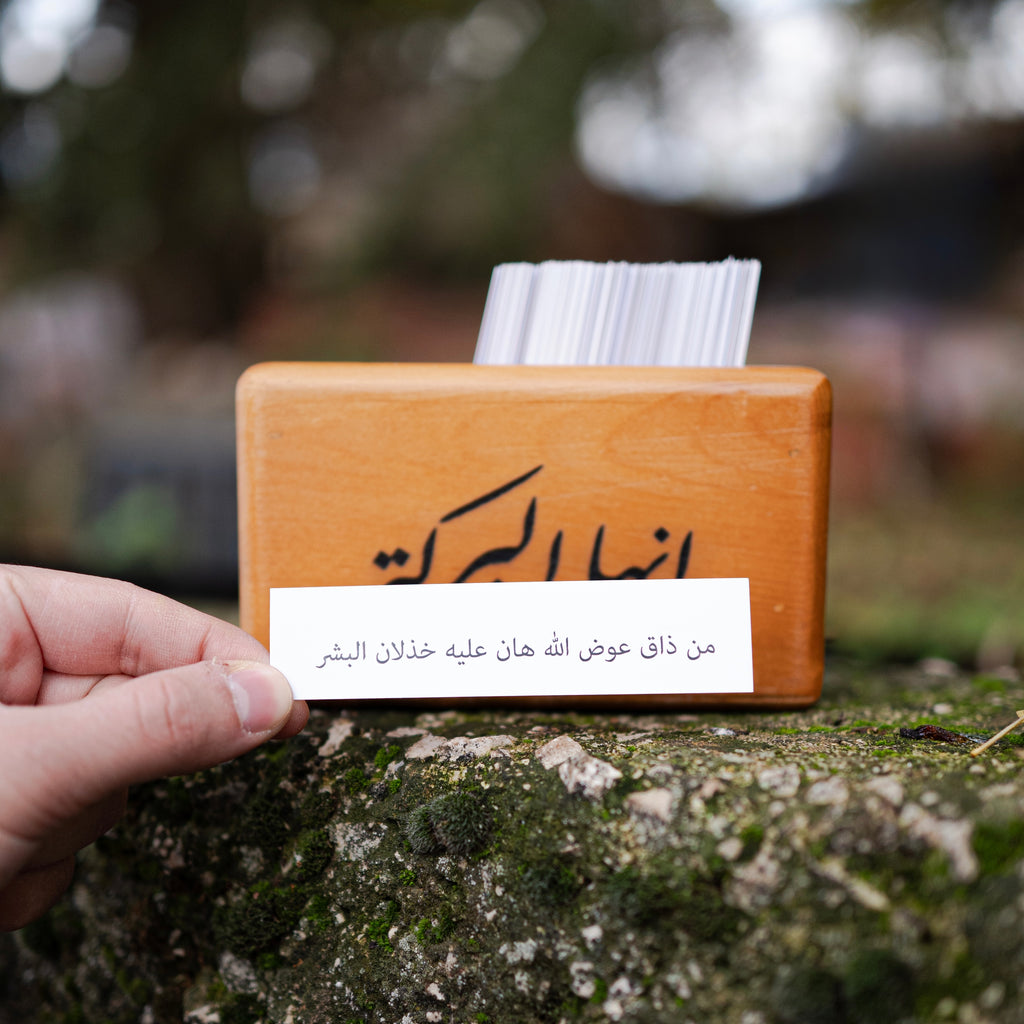 انهار البركة
من ذاق عوض الله هان عليه خذلان البشر